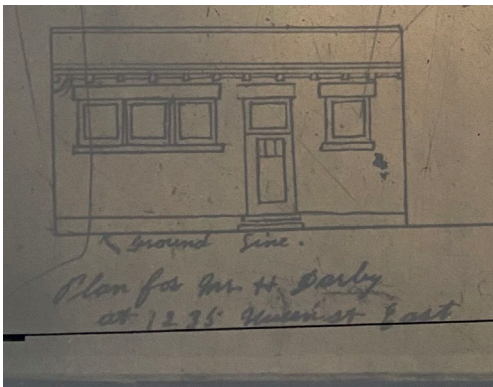 Ground Line.
Plan for Mr H. Darby
at 1235 Queen st East